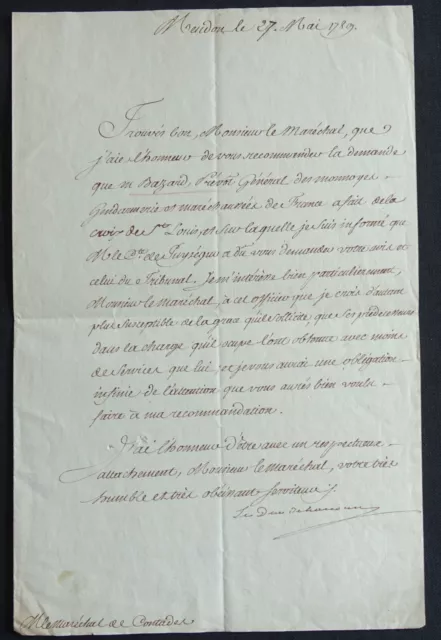 Meudon le 27. Mai 1789.
Trouvés bon, Monsieur le Maréchal, que
j'aie l'honneur de vous recommander la demande
que m. Bazard, Prévôt Général des monnoyes
Gendarmerie et maréchaussée de France a fait de la
croix de St. Louis, et sur laquelle je suis informé que
M. le Cte. de Puységur a dû vous demander votre avis et
celui du Tribunal. Je m'intéresse bien particulièrement,
Monsieur le maréchal, à cet officier que je crois d'autant
plus susceptible de la grace qu'il sollicite, que ses prédécesseurs
dans la charge qu'il occupe l'ont obtenue avec moins
de services que lui, et je vous aurai une obligation
infinie de l'attention que vous aurés bien voulu
faire à ma recommandation.
J'ai l'honneur d'être avec un respectueux
attachement, Monsieur le maréchal, votre très
humble et très obéissant serviteur,
Le Duc
M. le Maréchal de Contades